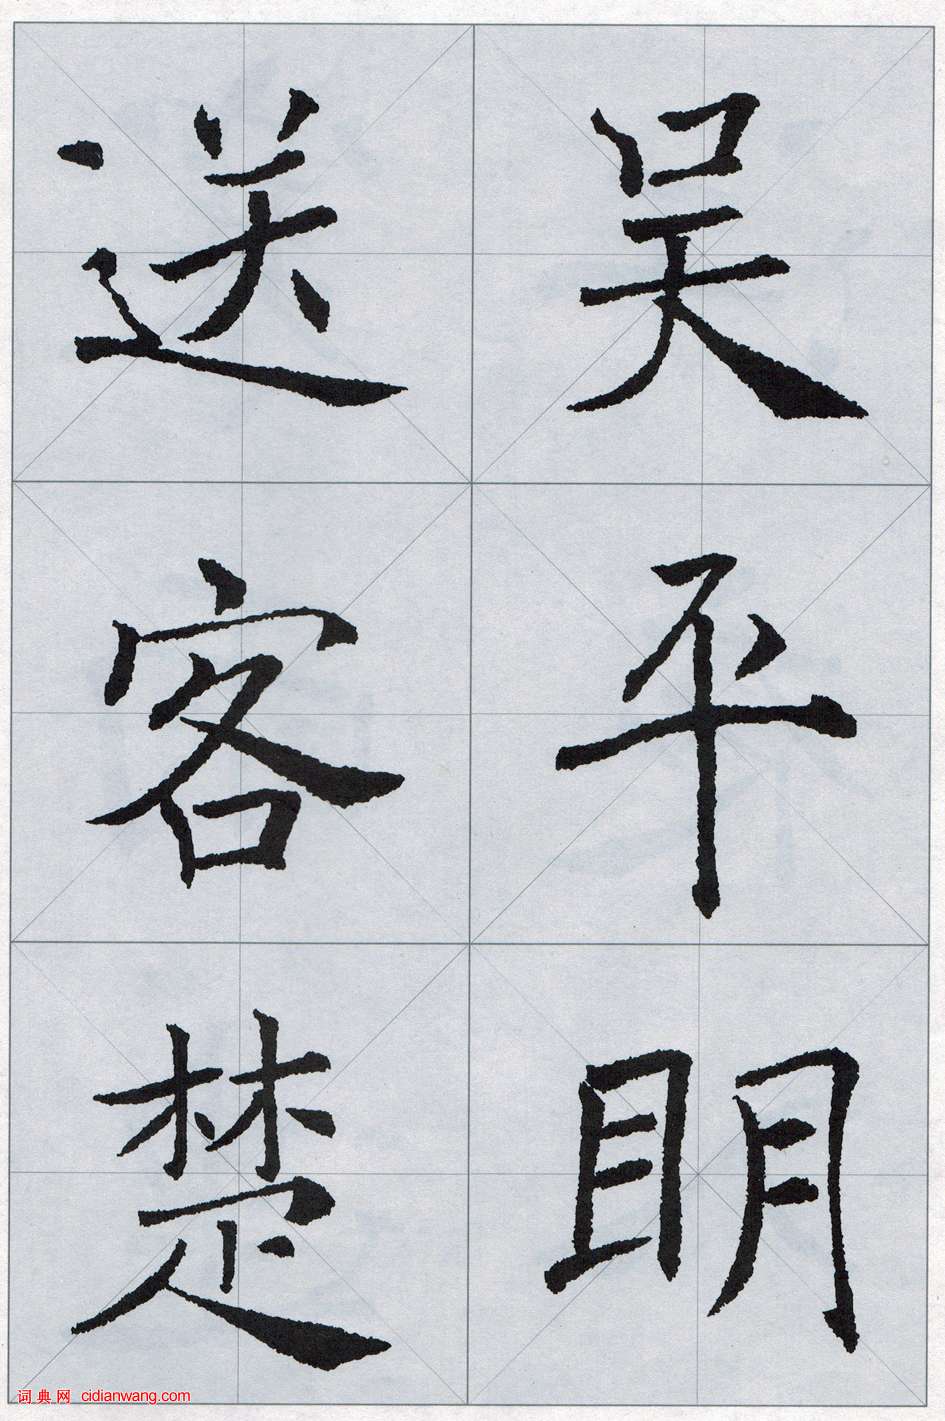 吴平明
送客楚
词典网 cidianwang.com